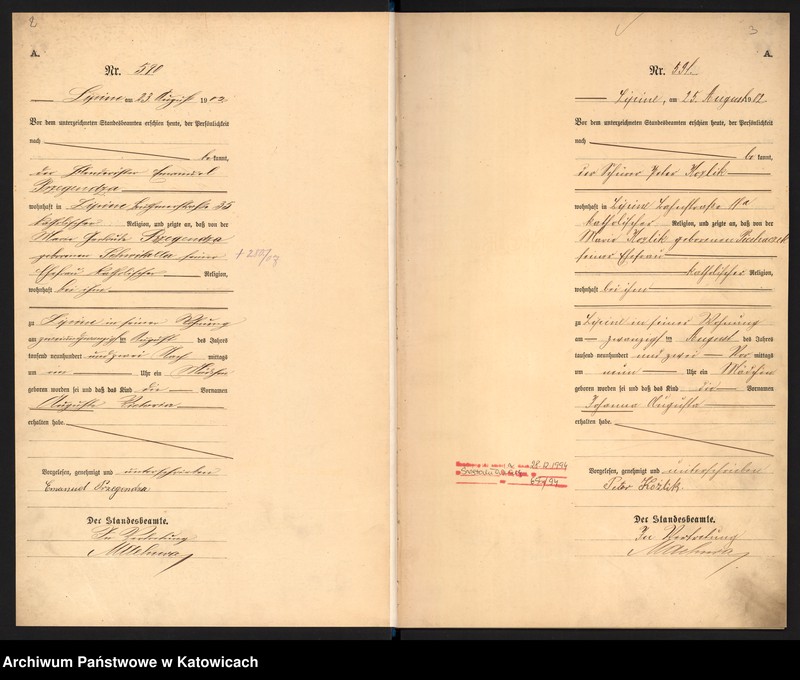 2
A.
Nr. 590
Lipine am 23 August 1902
Vor dem unterzeichneten Standesbeamten erschien heute, der Persönlichkeit
nach
be kannt,
der Emanuel
Przegendza
wohnhaft in Lipine 25
katholischer Religion, und zeigte an, daß von der
Maria Przegendza
geborenen seiner
Ehefrau katholischer Religion,
wohnhaft bei ihm
zu Lipine in seiner Wohnung
am zweiundzwanzigsten August des Jahres
tausend neunhundert und zwei Nach mittags
um ein Uhr ein Mädchen
geboren worden sei und daß das Kind die Vornamen
Auguste
erhalten habe.
Vorgelesen, genehmigt und unterschrieben
Emanuel Przegendza
Der Standesbeamte.
In Vertretung
3
A.
Nr. 591.
Lipine, am 25. August 1902
Vor dem unterzeichneten Standesbeamten erschien heute, der Persönlichkeit
nach
be kannt,
der Peter Kozlik
wohnhaft in Lipine Bahnstraße 11a
katholischer Religion, und zeigte an, daß von der
Maria Kozlik geborenen
seiner Ehefrau
katholischer Religion,
wohnhaft bei ihm
zu Lipine in seiner Wohnung
am zwanzigsten August des Jahres
tausend neunhundert und zwei Vor mittags
um neun Uhr ein Mädchen
geboren worden sei und daß das Kind die Vornamen
Johanna Augusta
erhalten habe.
28.12.1994
Vorgelesen, genehmigt und unterschrieben
Peter Kozlik.
Der Standesbeamte.
In Vertretung
Archiwum Państwowe w Katowicach